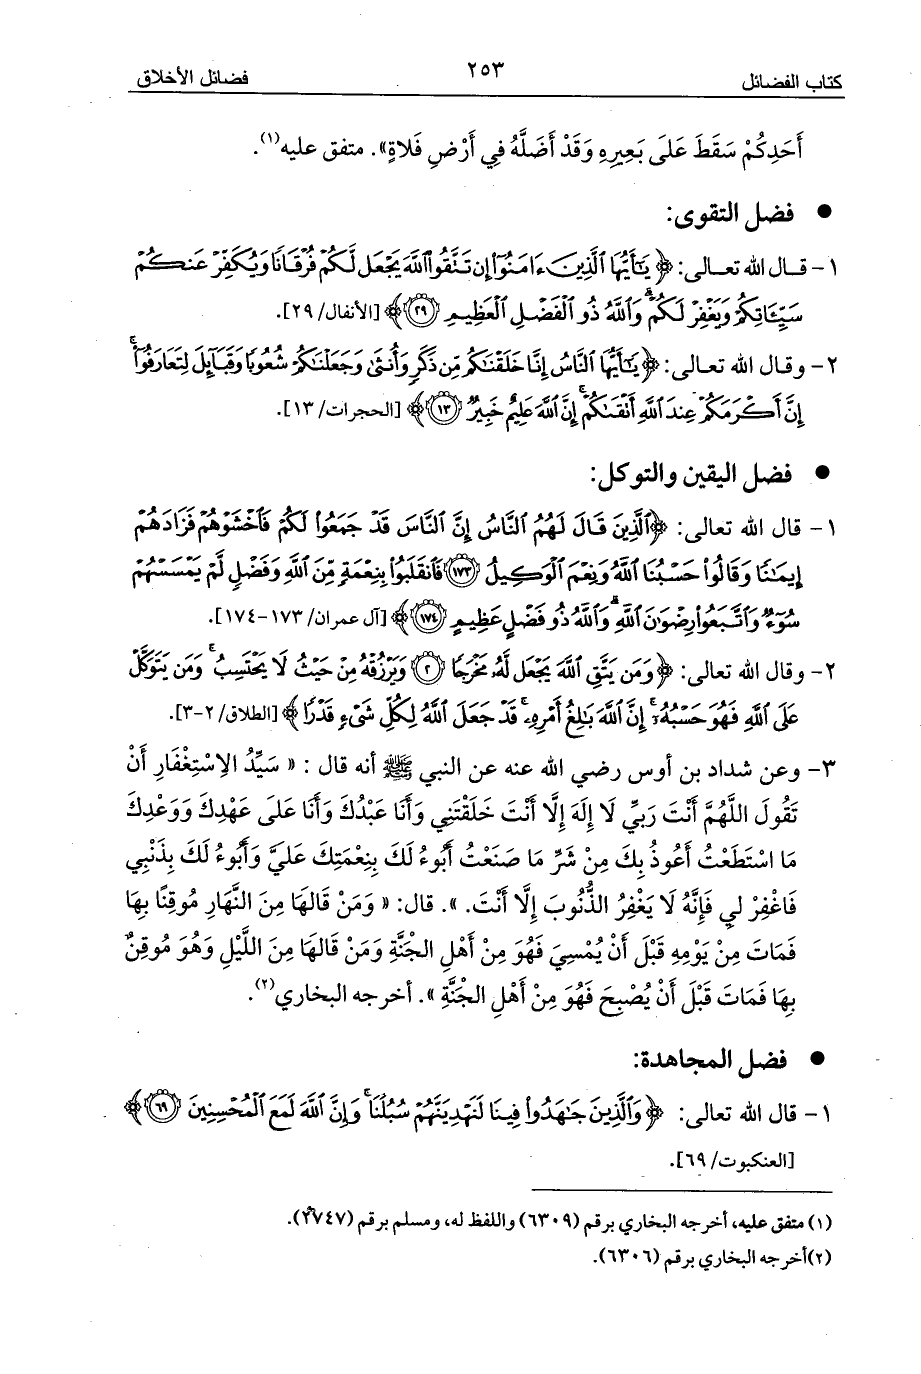 كتاب الفضائل ٢٥٣ فضائل الأخلاق
أَحَدِكُمْ سَقَطَ عَلَى بَعِيرِهِ وَقَدْ أَضَلَّهُ فِي أَرْضِ فَلاةٍ». متفق عليه(١).
● فضل التقوى:
١- قـال الله تعـالى: ﴿يَٰٓأَيُّهَا ٱلَّذِينَ ءَامَنُوٓا۟ إِن تَتَّقُوا۟ ٱللَّهَ يَجْعَل لَّكُمْ فُرْقَانًا وَيُكَفِّرْ عَنكُمْ
سَيِّـَٔاتِكُمْ وَيَغْفِرْ لَكُمْ ۗ وَٱللَّهُ ذُو ٱلْفَضْلِ ٱلْعَظِيمِ ٢٩﴾ [الأنفال/٢٩].
٢- وقـال الله تعـالى: ﴿يَٰٓأَيُّهَا ٱلنَّاسُ إِنَّا خَلَقْنَٰكُم مِّن ذَكَرٍ وَأُنثَىٰ وَجَعَلْنَٰكُمْ شُعُوبًا وَقَبَآئِلَ لِتَعَارَفُوٓا۟ ۚ
إِنَّ أَكْرَمَكُمْ عِندَ ٱللَّهِ أَتْقَىٰكُمْ ۚ إِنَّ ٱللَّهَ عَلِيمٌ خَبِيرٌ ١٣﴾ [الحجرات/١٣].
● فضل اليقين والتوكل:
١- قال الله تعالى: ﴿ٱلَّذِينَ قَالَ لَهُمُ ٱلنَّاسُ إِنَّ ٱلنَّاسَ قَدْ جَمَعُوا۟ لَكُمْ فَٱخْشَوْهُمْ فَزَادَهُمْ
إِيمَٰنًا وَقَالُوا۟ حَسْبُنَا ٱللَّهُ وَنِعْمَ ٱلْوَكِيلُ ١٧٣ فَٱنقَلَبُوا۟ بِنِعْمَةٍ مِّنَ ٱللَّهِ وَفَضْلٍ لَّمْ يَمْسَسْهُمْ
سُوٓءٌ وَٱتَّبَعُوا۟ رِضْوَٰنَ ٱللَّهِ ۗ وَٱللَّهُ ذُو فَضْلٍ عَظِيمٍ ١٧٤﴾ [آل عمران/١٧٣-١٧٤].
٢- وقال الله تعالى: ﴿وَمَن يَتَّقِ ٱللَّهَ يَجْعَل لَّهُۥ مَخْرَجًا ٢ وَيَرْزُقْهُ مِنْ حَيْثُ لَا يَحْتَسِبُ ۚ وَمَن يَتَوَكَّلْ
عَلَى ٱللَّهِ فَهُوَ حَسْبُهُۥٓ ۚ إِنَّ ٱللَّهَ بَٰلِغُ أَمْرِهِۦ ۚ قَدْ جَعَلَ ٱللَّهُ لِكُلِّ شَىْءٍ قَدْرًا﴾ [الطلاق/٢-٣].
٣- وعن شداد بن أوس رضي الله عنه عن النبي ﷺ أنه قال : « سَيِّدُ الاِسْتِغْفَارِ أَنْ
تَقُولَ اللَّهُمَّ أَنْتَ رَبِّي لَا إِلَهَ إِلَّا أَنْتَ خَلَقْتَنِي وَأَنَا عَبْدُكَ وَأَنَا عَلَى عَهْدِكَ وَوَعْدِكَ
مَا اسْتَطَعْتُ أَعُوذُ بِكَ مِنْ شَرِّ مَا صَنَعْتُ أَبُوءُ لَكَ بِنِعْمَتِكَ عَلَيَّ وَأَبُوءُ لَكَ بِذَنْبِي
فَاغْفِرْ لِي فَإِنَّهُ لَا يَغْفِرُ الذُّنُوبَ إِلَّا أَنْتَ. ». قال: « وَمَنْ قَالَهَا مِنَ النَّهَارِ مُوقِنًا بِهَا
فَمَاتَ مِنْ يَوْمِهِ قَبْلَ أَنْ يُمْسِيَ فَهُوَ مِنْ أَهْلِ الجَنَّةِ وَمَنْ قَالَهَا مِنَ اللَّيْلِ وَهُوَ مُوقِنٌ
بِهَا فَمَاتَ قَبْلَ أَنْ يُصْبِحَ فَهُوَ مِنْ أَهْلِ الجَنَّةِ ». أخرجه البخاري(٢).
● فضل المجاهدة:
١- قال الله تعالى: ﴿وَٱلَّذِينَ جَٰهَدُوا۟ فِينَا لَنَهْدِيَنَّهُمْ سُبُلَنَا ۚ وَإِنَّ ٱللَّهَ لَمَعَ ٱلْمُحْسِنِينَ ٦٩﴾
[العنكبوت/٦٩].
(١) متفق عليه، أخرجه البخاري برقم (٦٣٠٩) واللفظ له، ومسلم برقم (٢٧٤٧).
(٢)أخرجه البخاري برقم (٦٣٠٦).